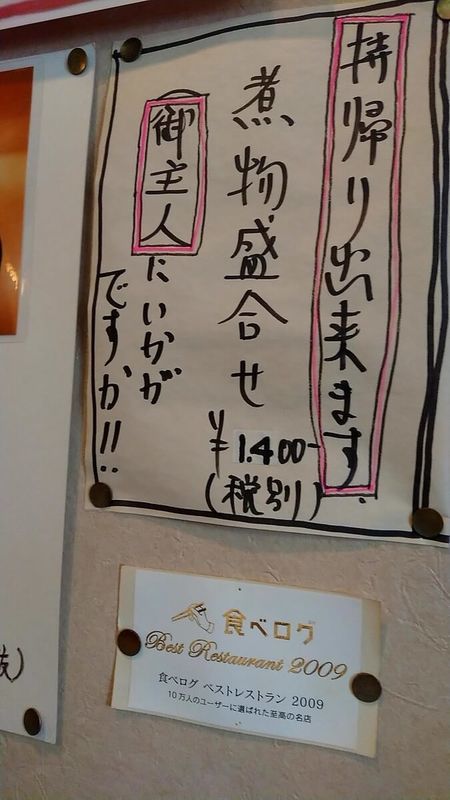 持帰り出来ます
煮物盛合せ
¥1.400-
(税別)
御主人にいかが
ですか!!
食べログ
Best Restaurant 2009
食べログ ベストレストラン 2009
10万人のユーザーに選ばれた至高の名店
抜)